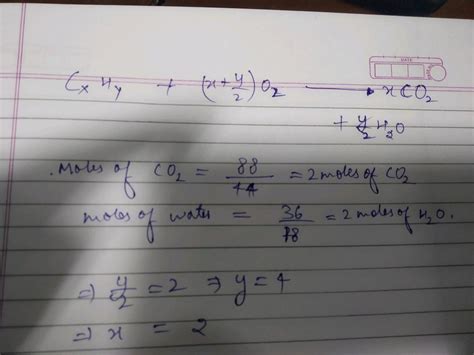 CxHy + (x+y/2)O2 ⟶ xCO2
+ y/2 H2O
Moles of CO2 = 88/44 = 2 moles of CO2
moles of water = 36/18 = 2 moles of H2O.
⇒ y/2 = 2 ⇒ y = 4
⇒ x = 2